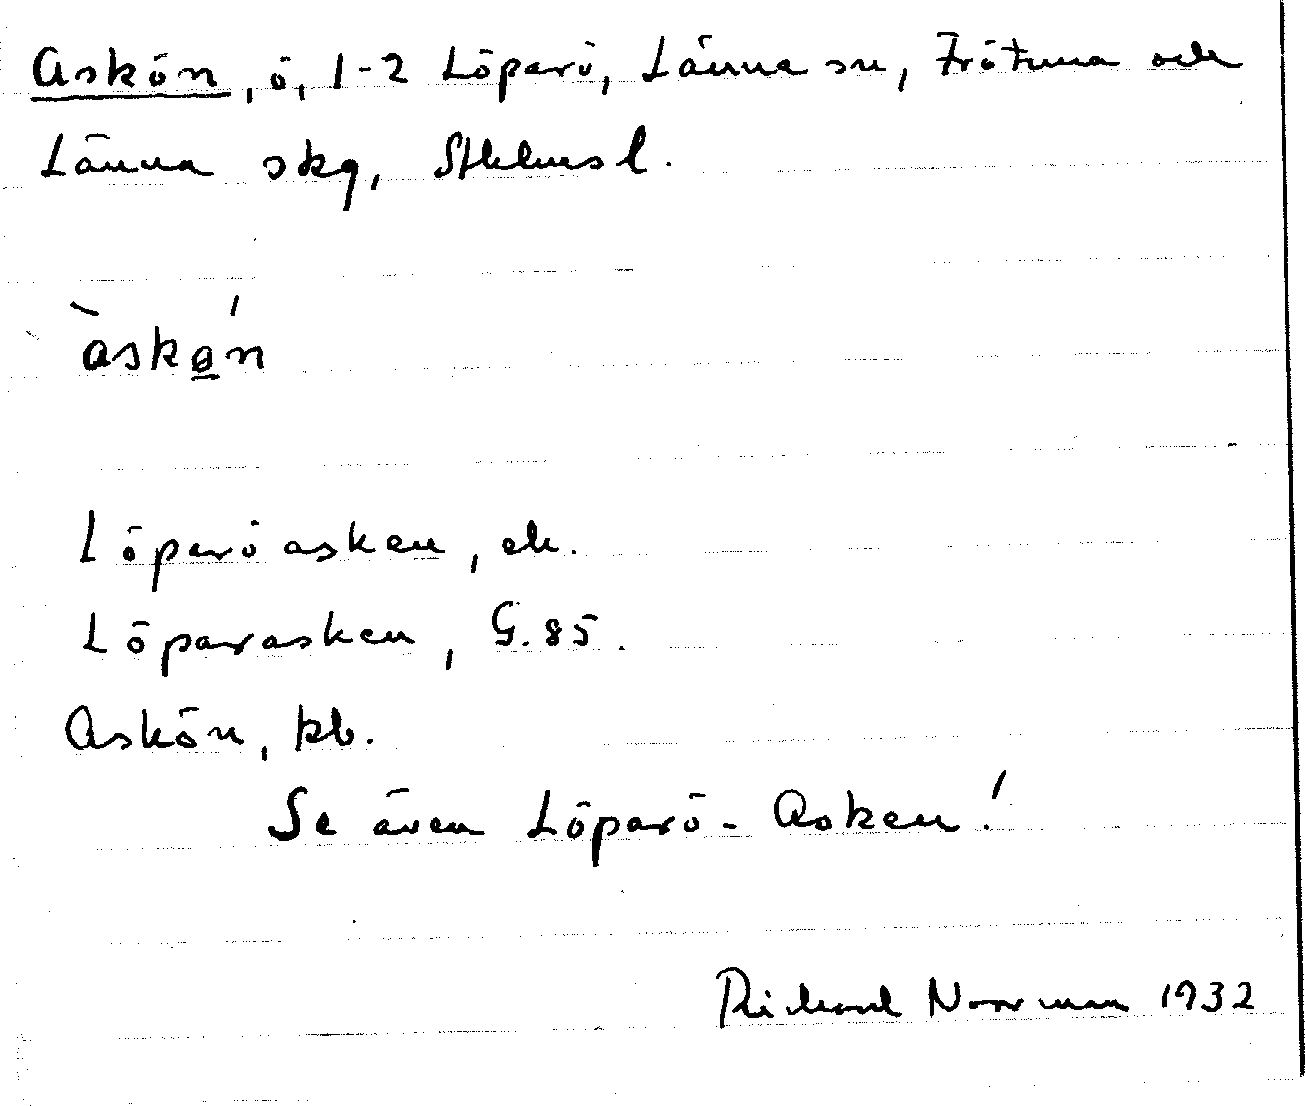 Askön, ö, 1-2 Löparö, Länna sn, Frötuna och
Länna skg, Sthlms l.
àskǝ́n
Löparöasken, ek.
Löparasken, G. 85.
Askön, kb.
Se även Löparö-Asken!
Richard Norrman 1932